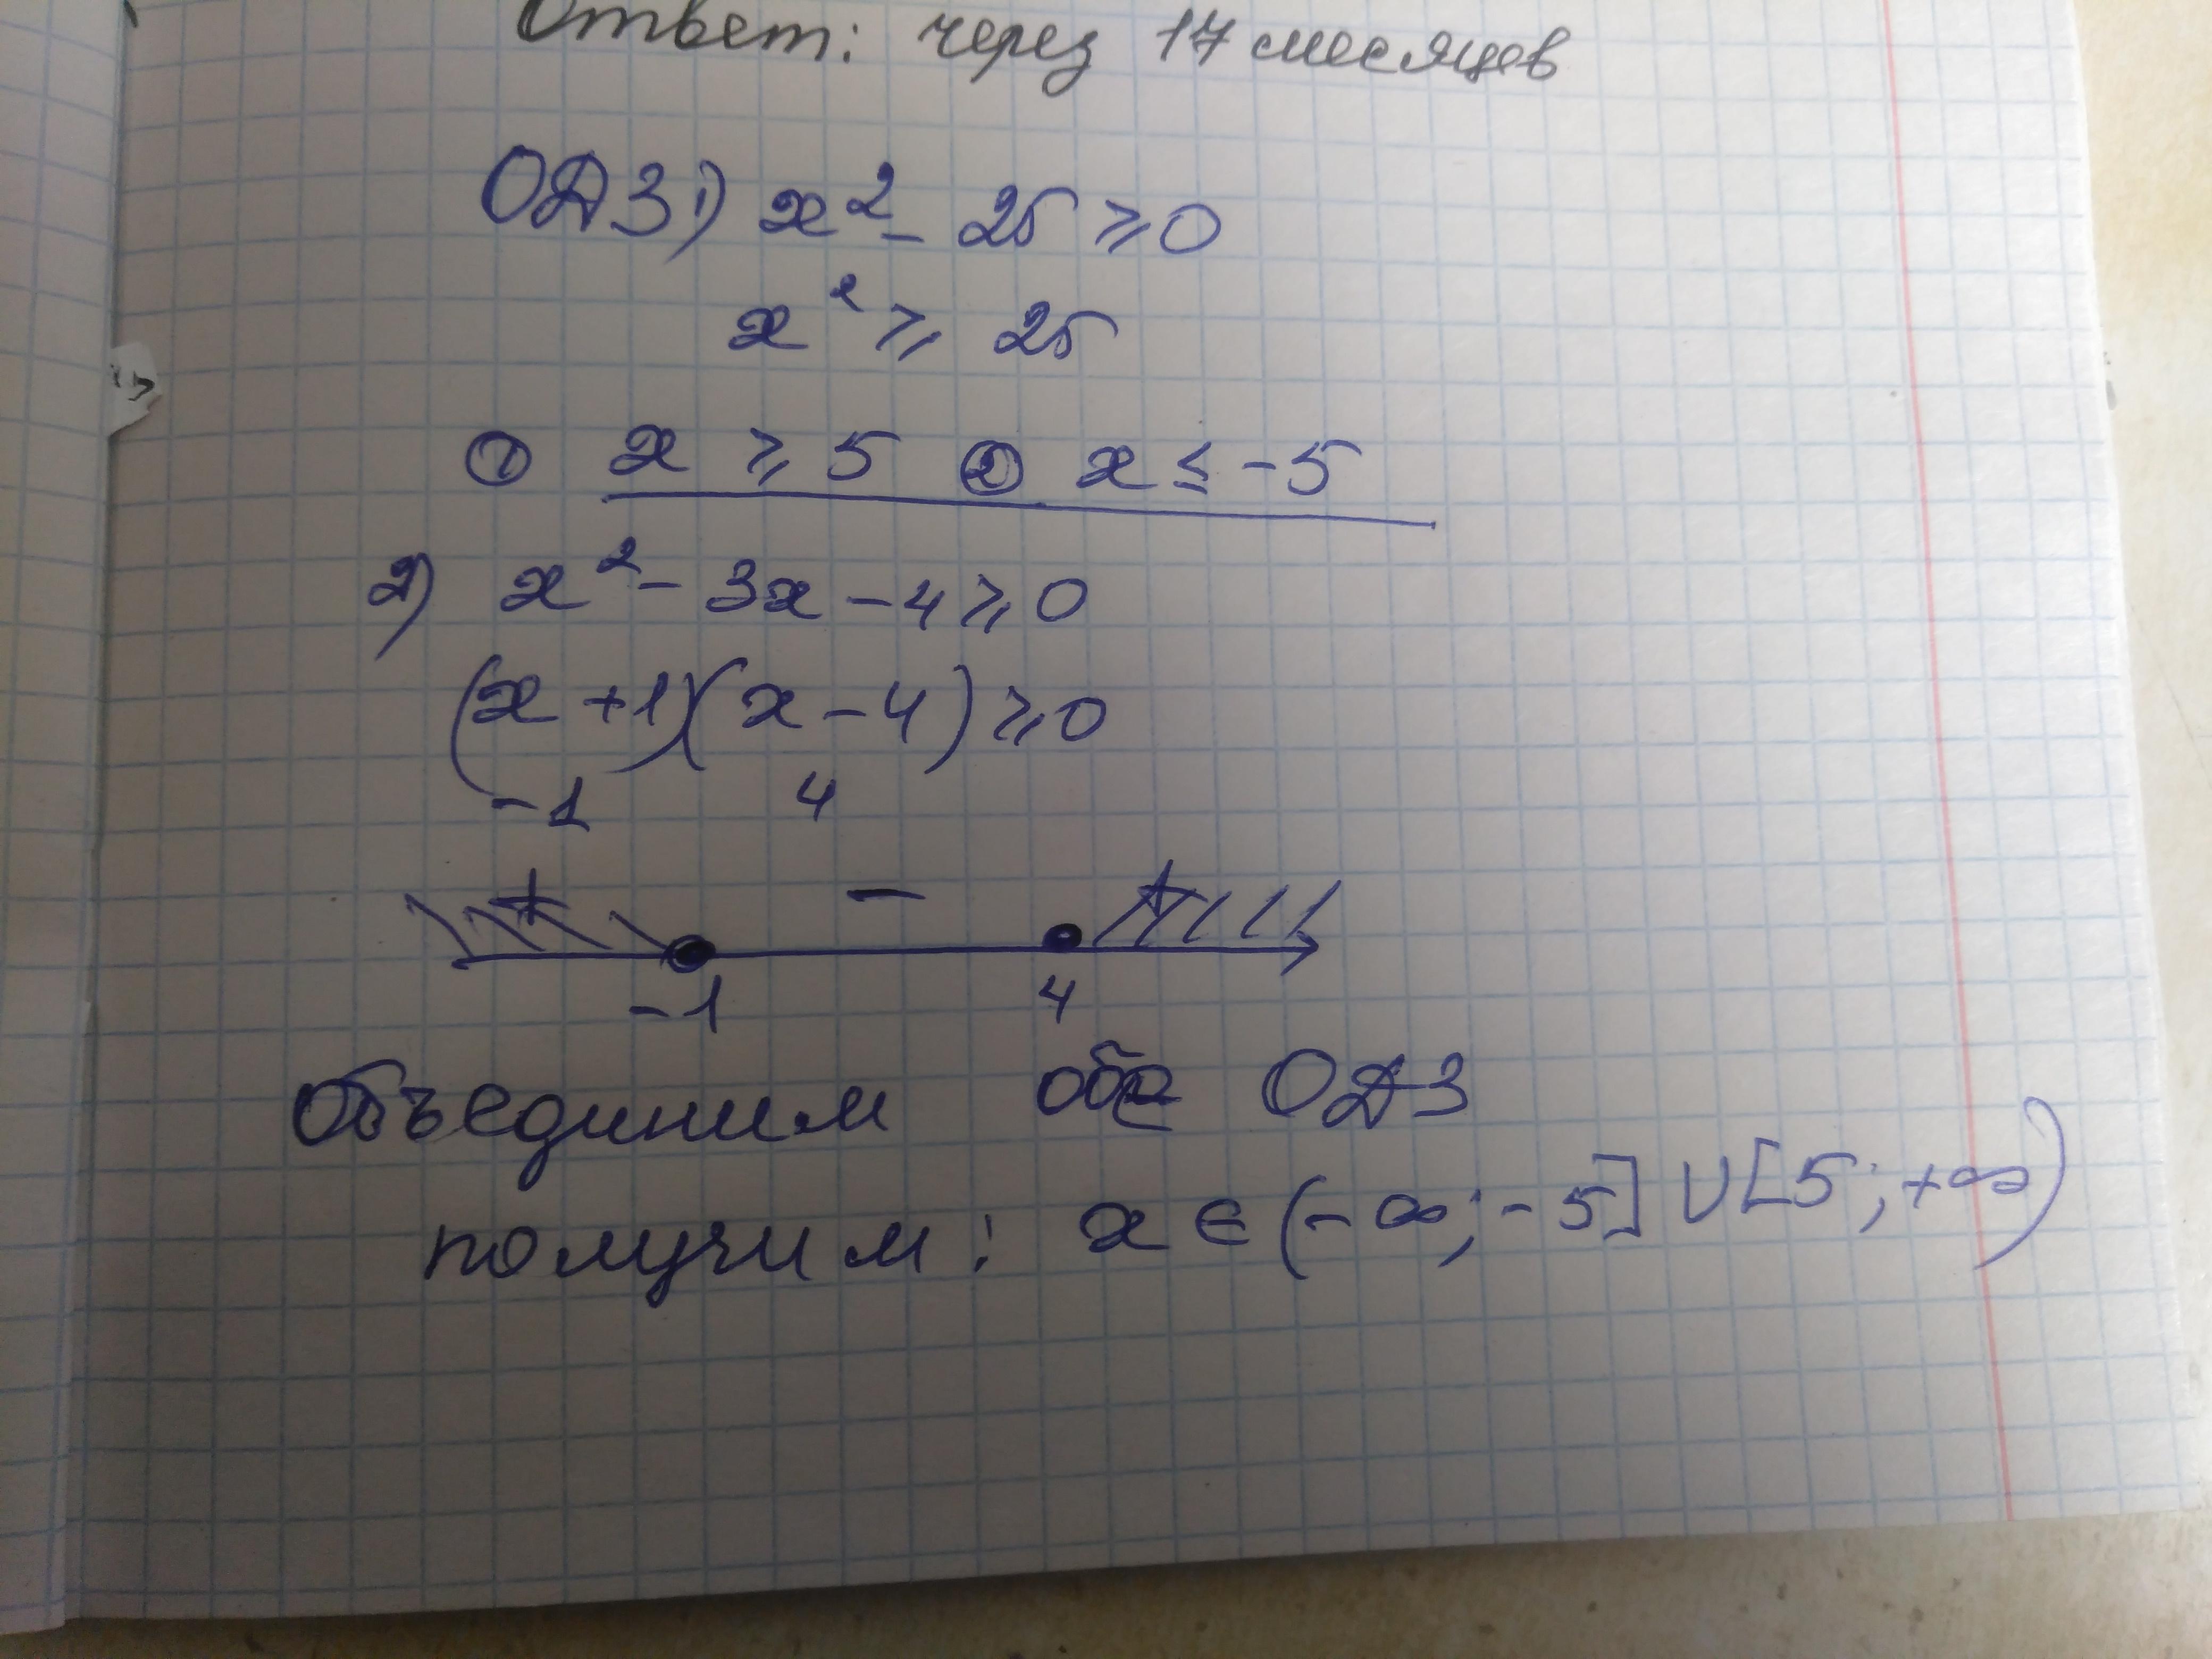 Ответ: через 17 месяцев
ОДЗ 1) x² - 25 ⩾ 0
x² ⩾ 25
① x ⩾ 5 ② x ≤ -5
2) x² - 3x - 4 ⩾ 0
(x + 1)(x - 4) ⩾ 0
-1 4
+ - +
-1 4
Объединим обе ОДЗ
получим: x ∈ (-∞; -5] ∪ [5; +∞)